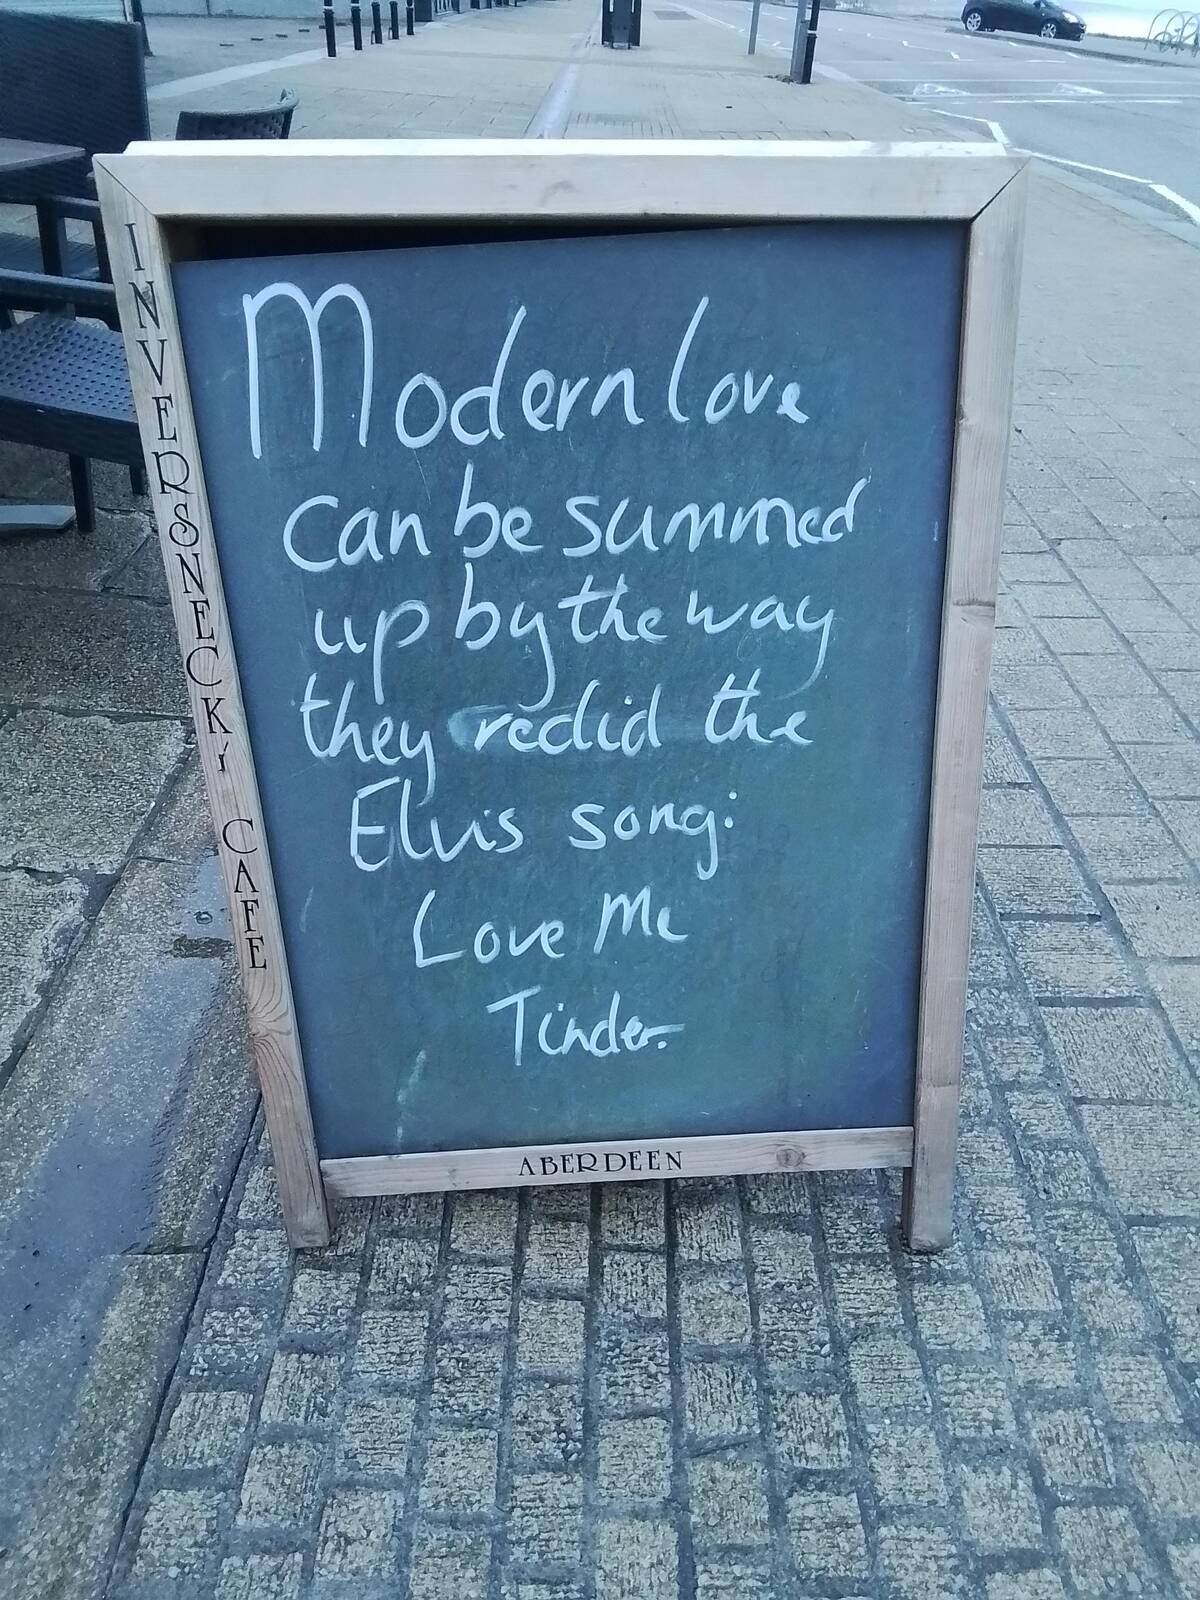 INVERSNECKY CAFE
Modern love
can be summed
up by the way
they redid the
Elvis song:
Love Me
Tinder.
ABERDEEN